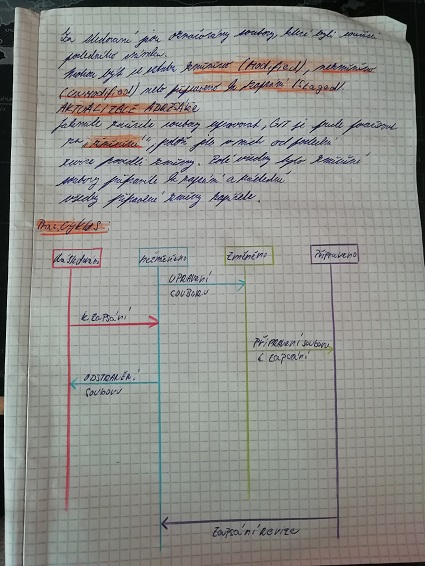 Za sledování jsou označovány soubory, které byly součástí
posledního snímku.
Mohou být ve stavu změněno (Modified), nezměněno
(Unmodified) nebo připraveno k zapsání (Staged)
AKTUALIZACE ADRESÁŘE
Jakmile začnete soubory upravovat, GIT je bude považovat
za "změněné", protože jste v nich od poslední
revize provedli změny. Poté všechny tyto změněné
soubory připravíte k zapsání a následně
všechny připravené změny zapíšete.
Prac. Cyklus:
Nesledováno nezměněno změněno připraveno
UPRAVENÍ
SOUBORU
K ZAPSÁNÍ
PŘIPRAVENÍ souboru
K ZAPSÁNÍ
ODSTRANĚNÍ
SOUBORU
ZAPSÁNÍ REVIZE